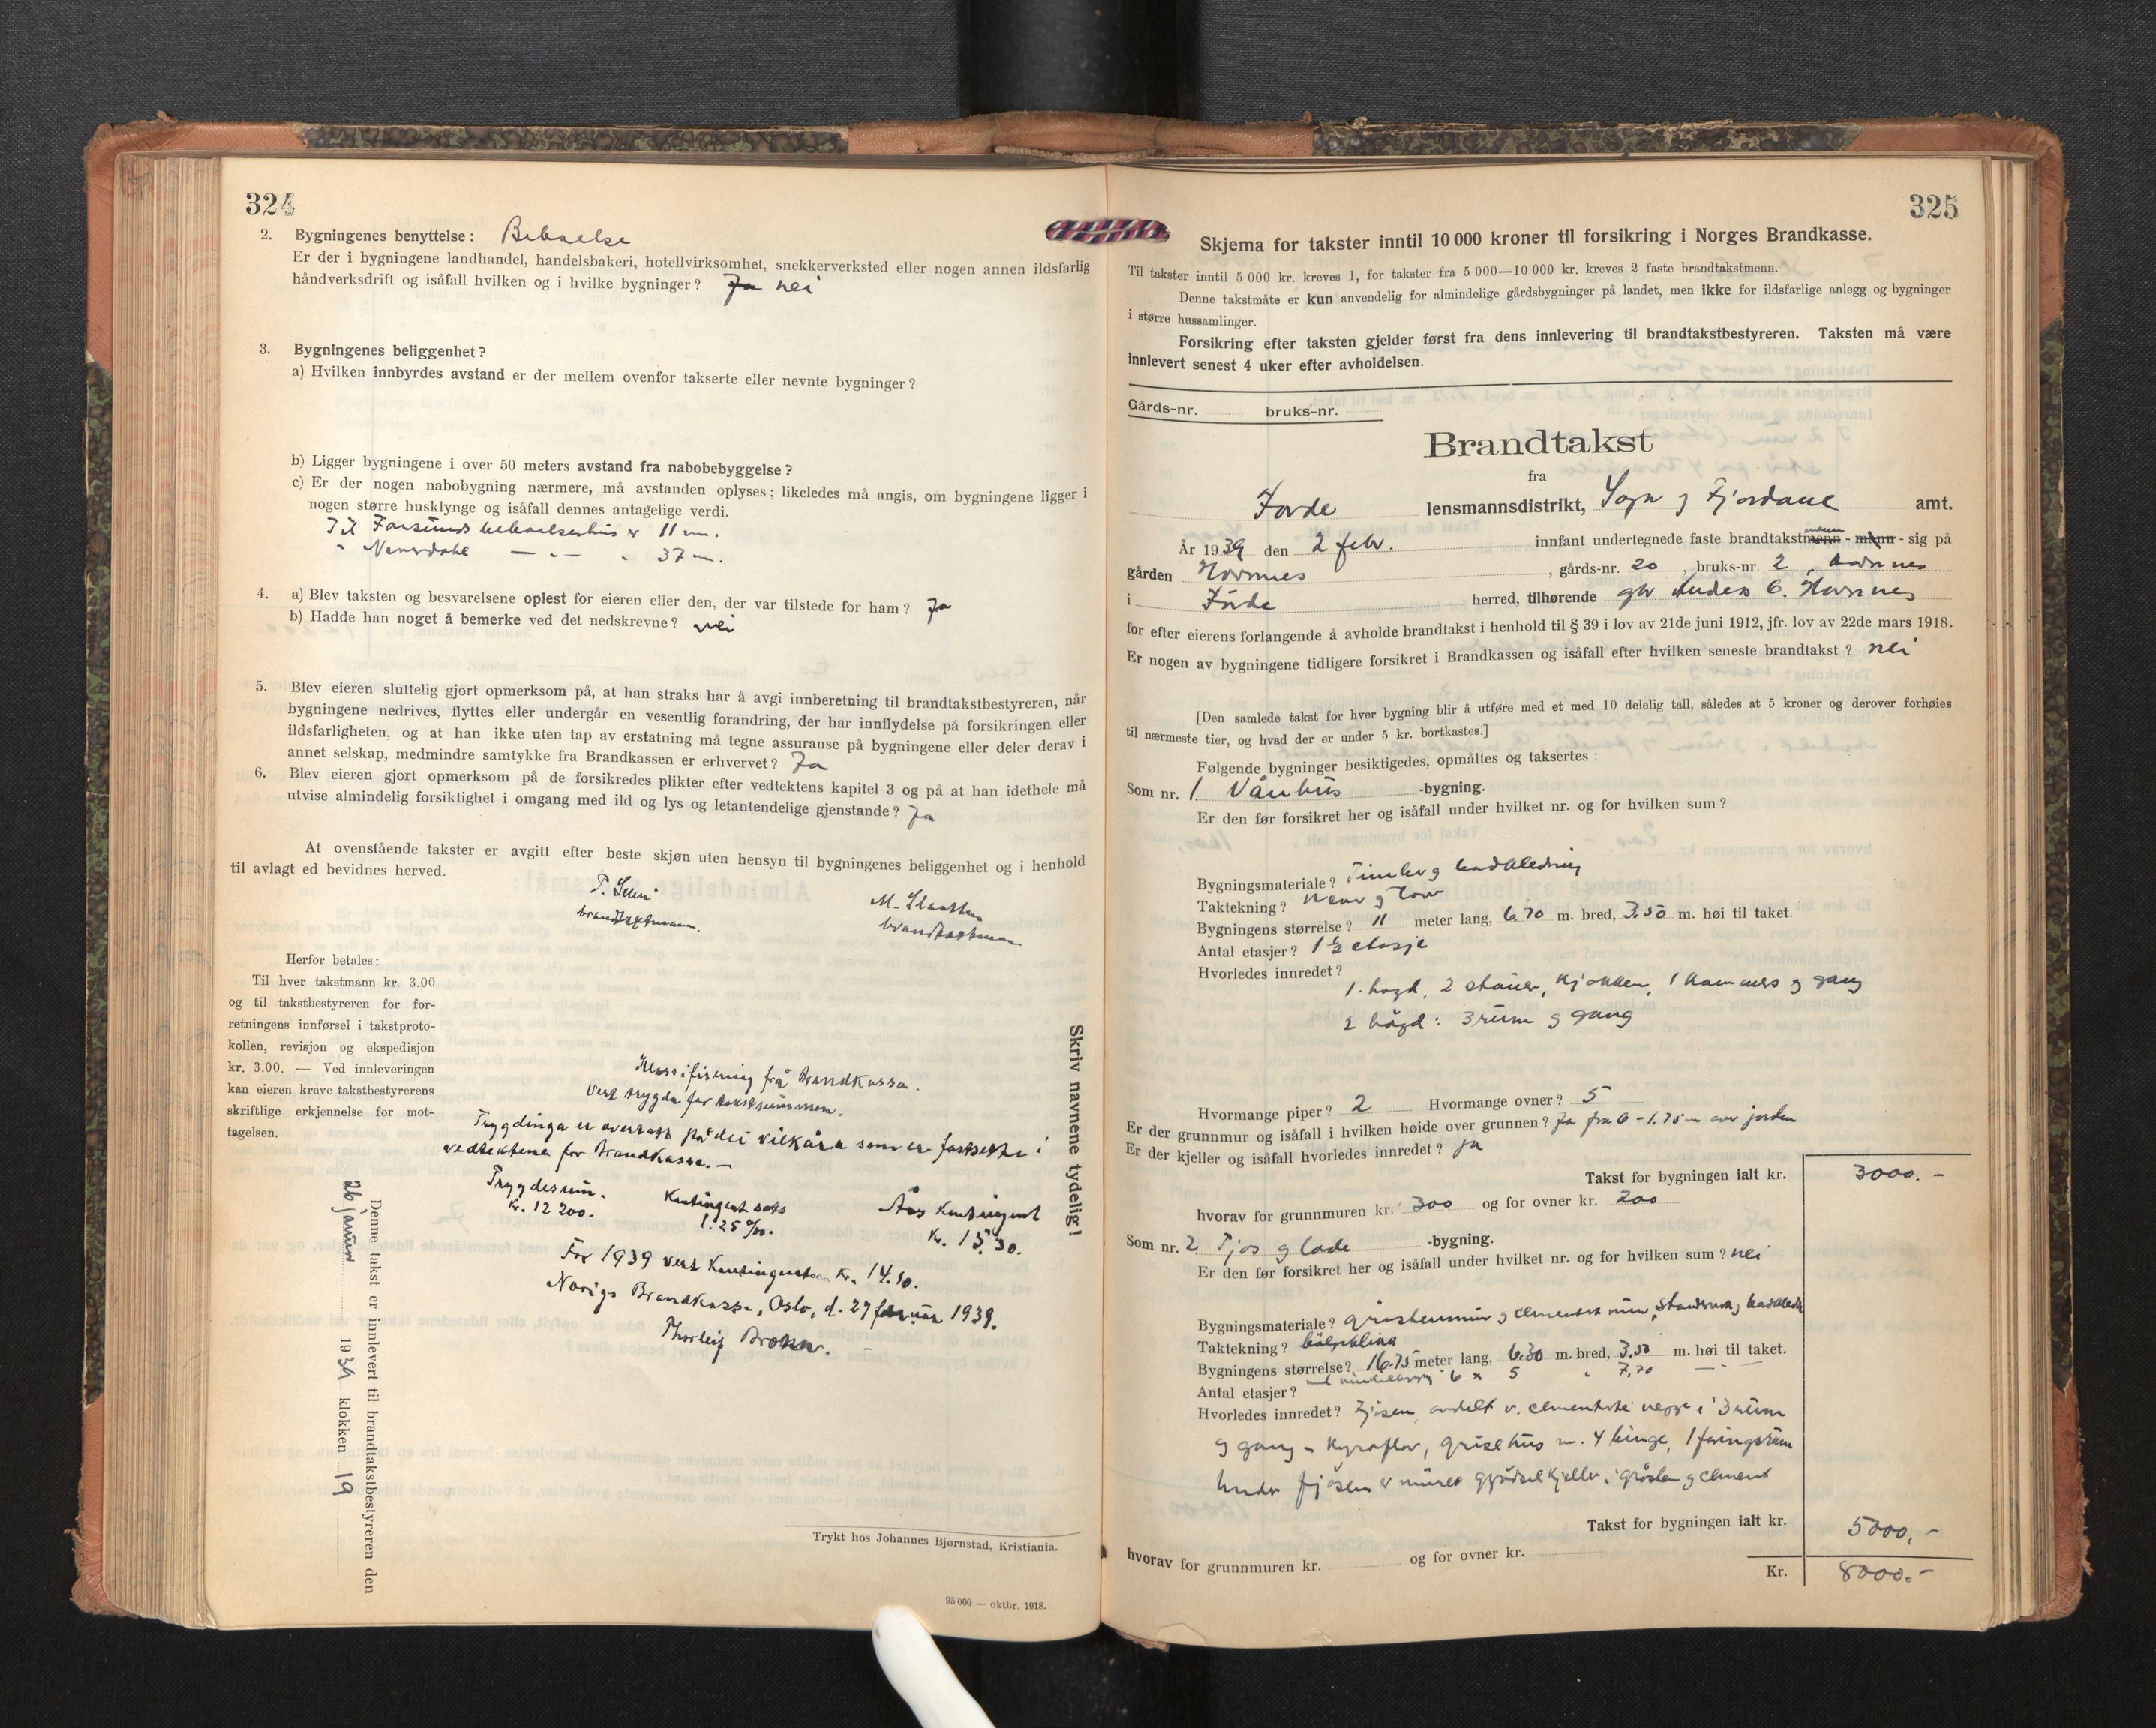 324
2. Bygningenes benyttelse: Beboelse
Er der i bygningene landhandel, handelsbakeri, hotellvirksomhet, snekkerverksted eller nogen annen ildsfarlig
håndverksdrift og isåfall hvilken og i hvilke bygninger? Ja nei
3. Bygningenes beliggenhet?
a) Hvilken innbyrdes avstand er der mellem ovenfor takserte eller nevnte bygninger?
b) Ligger bygningene i over 50 meters avstand fra nabobebyggelse?
c) Er der nogen nabobygning nærmere, må avstanden oplyses; likeledes må angis, om bygningene ligger i
nogen større husklynge og isåfall dennes antagelige verdi.
Til Farsunds beboelseshus er 11 m.
" — " — " 37 m.
4. a) Blev taksten og besvarelsene oplest for eieren eller den, der var tilstede for ham? Ja
b) Hadde han noget å bemerke ved det nedskrevne? nei
5. Blev eieren sluttelig gjort opmerksom på, at han straks har å avgi innberetning til brandtakstbestyreren, når
bygningene nedrives, flyttes eller undergår en vesentlig forandring, der har innflydelse på forsikringen eller
ildsfarligheten, og at han ikke uten tap av erstatning må tegne assuranse på bygningene eller deler derav i
annet selskap, medmindre samtykke fra Brandkassen er erhvervet? Ja
6. Blev eieren gjort opmerksom på de forsikredes plikter efter vedtektens kapitel 3 og på at han idethele må
utvise almindelig forsiktighet i omgang med ild og lys og letantendelige gjenstande? Ja
At ovenstående takster er avgitt efter beste skjøn uten hensyn til bygningenes beliggenhet og i henhold
til avlagt ed bevidnes herved.
brandtakstmann. brandtakstmann
Herfor betales:
Til hver takstmann kr. 3.00
og til takstbestyreren for for-
retningens innførsel i takstproto-
kollen, revisjon og ekspedisjon
kr. 3.00. — Ved innleveringen
kan eieren kreve takstbestyrerens
skriftlige erkjennelse for mot-
tagelsen.
Klassifisering frå Brandkassa.
Vert trygda for takstsummen.
Trygdinga er overtatt på dei vilkåra som er fastsette i
vedtektene for Brandkassa.—
Trygdesum. Kontingent sats Års Kontingent
Kr. 12 200. 1.25 ‰. Kr. 15.30.
For 1939 vert Kontingenten Kr. 14.10.
Norigs Brandkasse, Oslo, d. 27 februar 1939.
Skriv navnene tydelig!
Denne takst er innlevert til brandtakstbestyreren den
26 januar 1939 klokken 19
Trykt hos Johannes Bjørnstad, Kristiania.
95 000 — oktbr. 1918.
325
Skjema for takster inntil 10 000 kroner til forsikring i Norges Brandkasse.
Til takster inntil 5 000 kr. kreves 1, for takster fra 5 000—10 000 kr. kreves 2 faste brandtakstmenn.
Denne takstmåte er kun anvendelig for almindelige gårdsbygninger på landet, men ikke for ildsfarlige anlegg og bygninger
i større hussamlinger.
Forsikring efter taksten gjelder først fra dens innlevering til brandtakstbestyreren. Taksten må være
innlevert senest 4 uker efter avholdelsen.
Gårds-nr. bruks-nr.
Brandtakst
fra
Førde lensmannsdistrikt, Sogn og Fjordane amt.
År 1939 den 2 febr. innfant undertegnede faste brandtakstmenn - mann - sig på
gården Hornnes , gårds-nr. 20 , bruks-nr. 2 , Hornnes
i Førde herred, tilhørende Anders C. Hornnes
for efter eierens forlangende å avholde brandtakst i henhold til § 39 i lov av 21de juni 1912, jfr. lov av 22de mars 1918.
Er nogen av bygningene tidligere forsikret i Brandkassen og isåfall efter hvilken seneste brandtakst? nei
[Den samlede takst for hver bygning blir å utføre med et med 10 delelig tall, således at 5 kroner og derover forhøies
til nærmeste tier, og hvad der er under 5 kr. bortkastes.]
Følgende bygninger besiktigedes, opmåltes og taksertes:
Som nr. 1. Vånhus -bygning.
Er den før forsikret her og isåfall under hvilket nr. og for hvilken sum?
Bygningsmateriale? Timber og bordkledning
Taktekning? Never og torv
Bygningens størrelse? 11 meter lang, 6.70 m. bred, 3.50 m. høi til taket.
Antal etasjer? 1½ etasje
Hvorledes innredet?
1. høgd, 2 stauer, kjøkken, 1 kammers og gang
2 høgd: 3 rum og gang
Hvormange piper? 2 Hvormange ovner? 5
Er der grunnmur og isåfall i hvilken høide over grunnen? Ja fra 0 - 1.75 m over jorden
Er der kjeller og isåfall hvorledes innredet? ja
Takst for bygningen ialt kr. 3000.-
hvorav for grunnmuren kr. 300 og for ovner kr. 200
Som nr. 2 Fjos og løde -bygning.
Er den før forsikret her og isåfall under hvilket nr. og for hvilken sum? nei
Bygningsmateriale? gråsteinmur og cementert mur, standverk og bordkledn
Taktekning? bølgeblikk
Bygningens størrelse? 16.75 meter lang, 6.30 m. bred, 3.50 m. høi til taket.
6 x 5 " 7,70 — " —
Antal etasjer?
Hvorledes innredet? Fjøsen avdelt v. cementerte vegger i 3 rum
og gang - kyraflor, grisehus m. 4 binge, 1 foringsrum
Under fjøsen er muret gjødselkjeller i gråsten og cement
Takst for bygningen ialt kr. 5000,-
hvorav for grunnmuren kr. og for ovner kr.
Kr. 8000.-